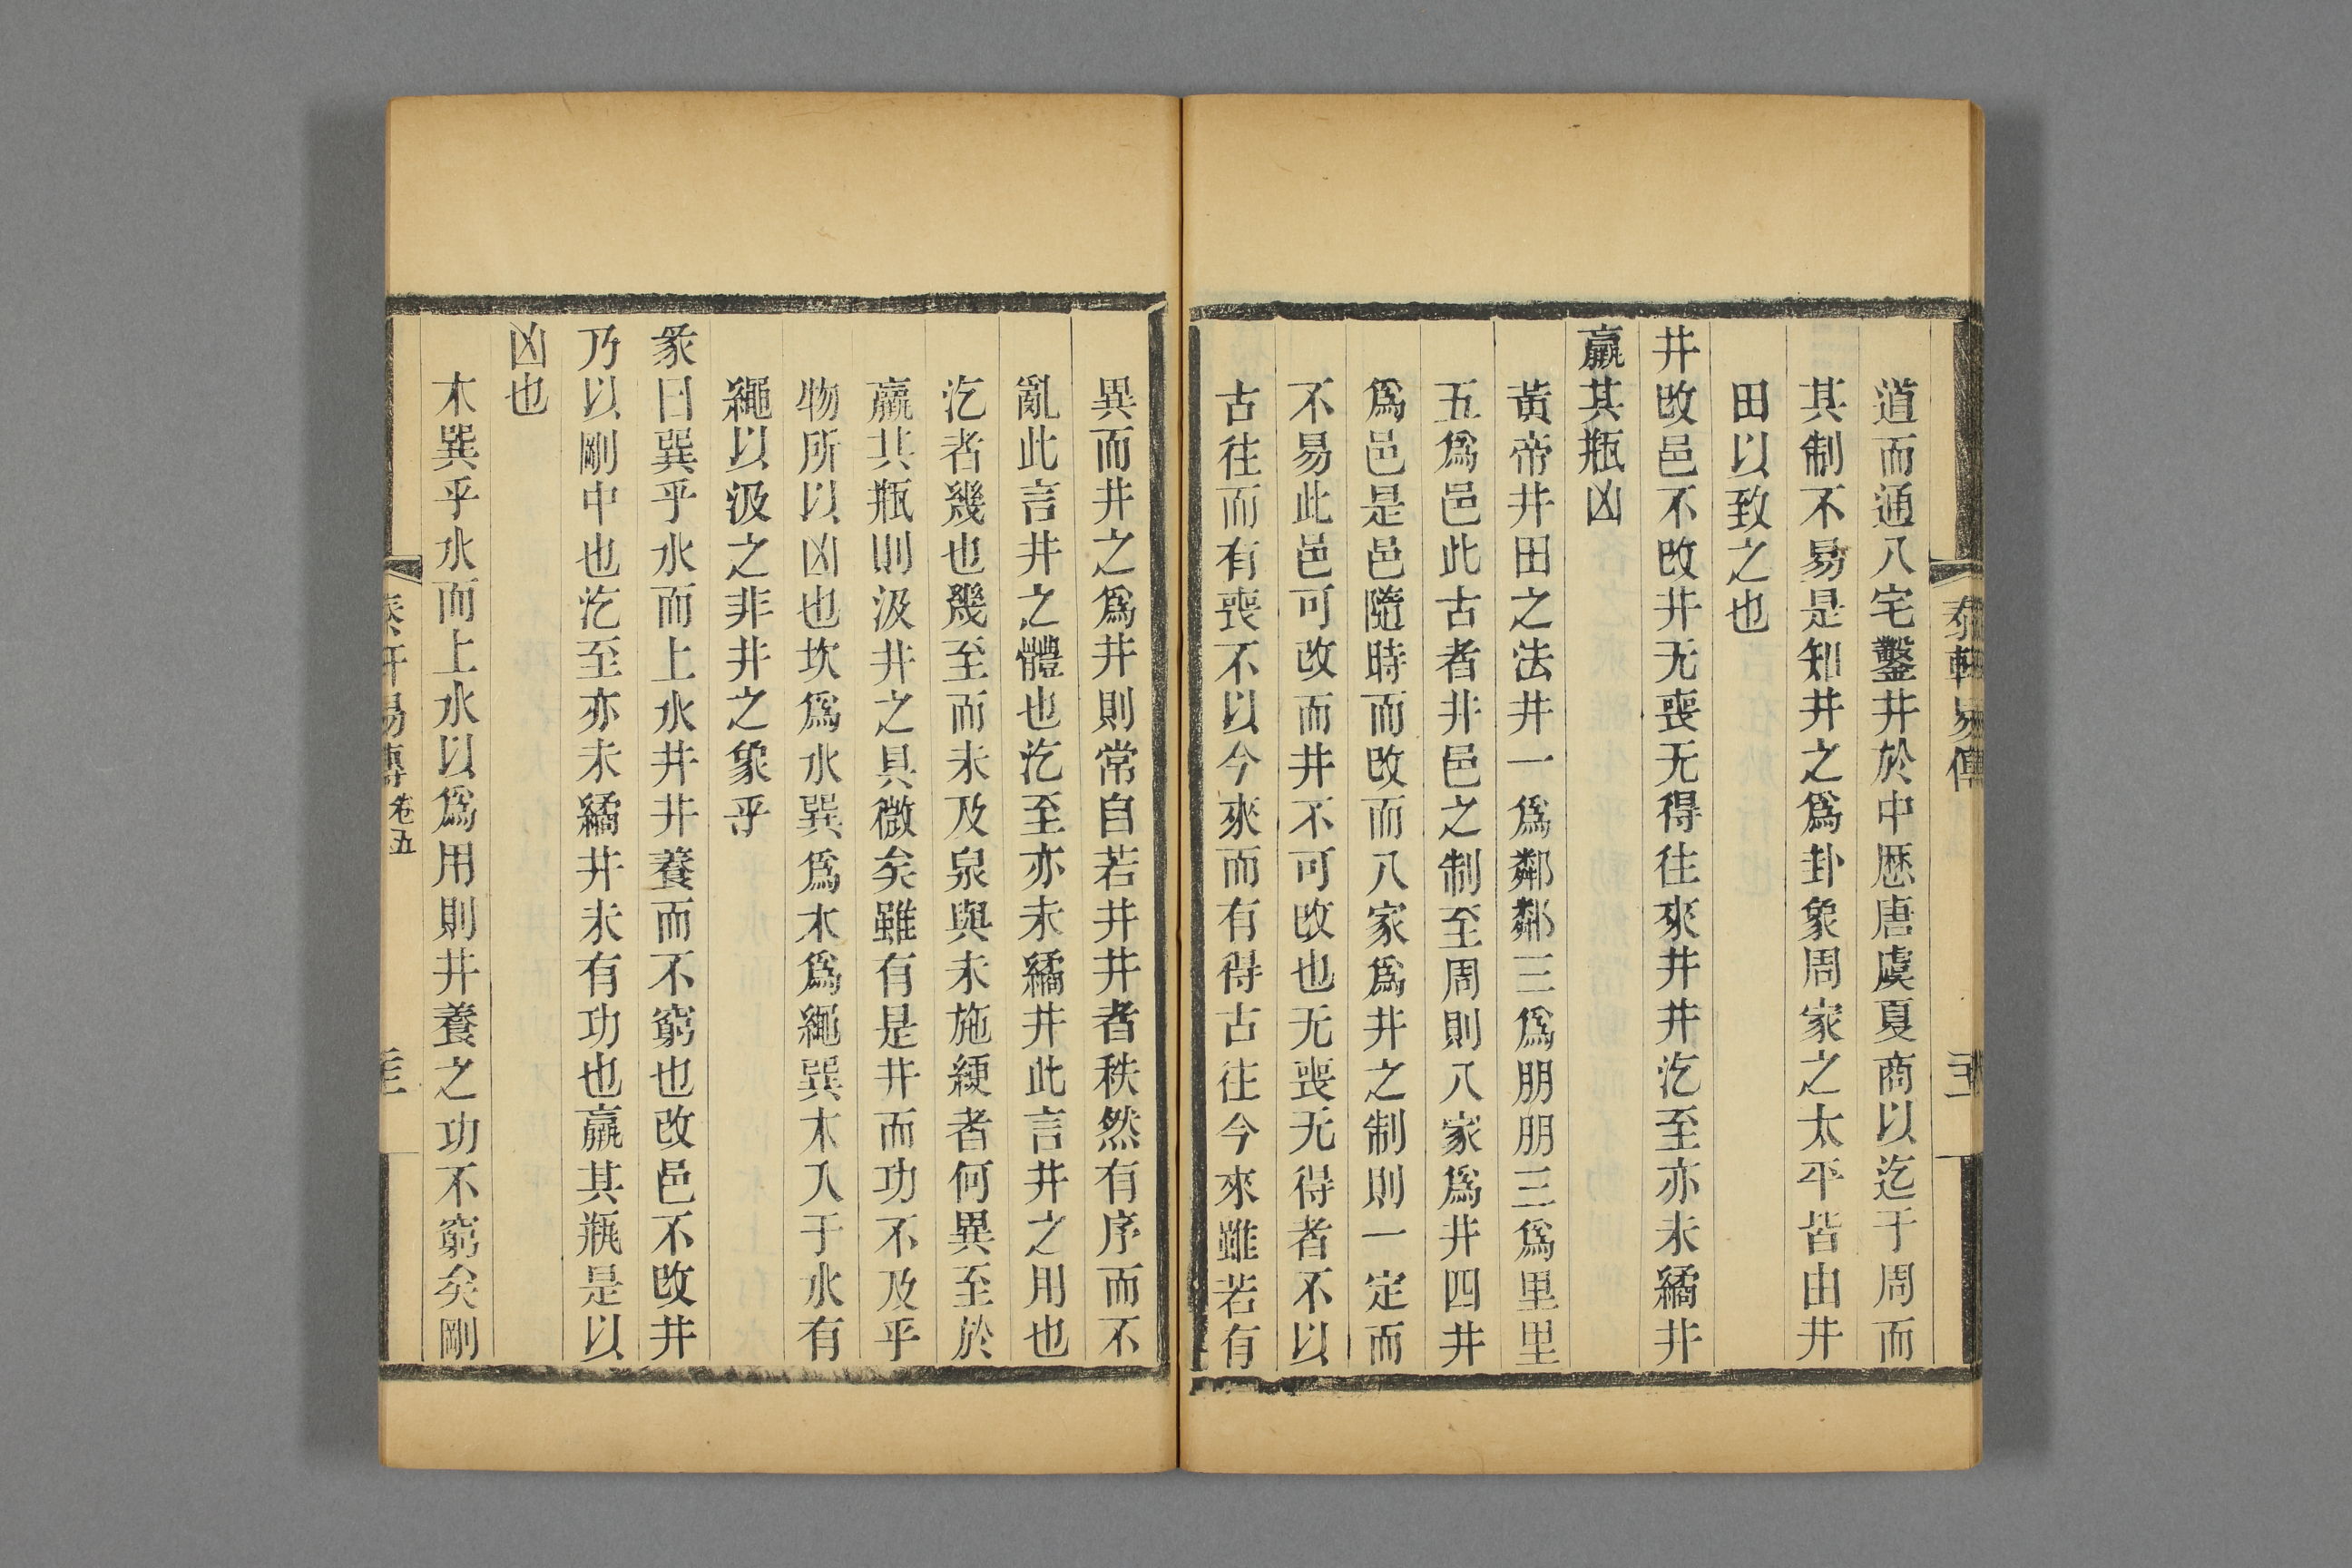 道而通八宅鑿井於中厯唐虞夏商以迄于周而
其制不易是知井之爲卦象周家之太平皆由井
田以致之也
井改邑不改井无喪无得往來井井汔至亦未繘井
羸其瓶凶
黃帝井田之法井一爲鄰鄰三爲朋朋三爲里里
五爲邑此古者井邑之制至周則八家爲井四井
爲邑是邑隨時而改而八家爲井之制則一定而
不易此邑可改而井不可改也无喪无得者不以
古往而有喪不以今來而有得古往今來雖若有
異而井之爲井則常自若井井者秩然有序而不
亂此言井之體也汔至亦未繘井此言井之用也
汔者幾也幾至而未及泉與未施綆者何異至於
羸其瓶則汲井之具微矣雖有是井而功不及乎
物所以凶也坎爲水巽爲木爲繩巽木入于水有
繩以汲之非井之象乎
彖曰巽乎水而上水井井養而不窮也改邑不改井
乃以剛中也汔至亦未繘井未有功也羸其瓶是以
凶也
木巽乎水而上水以爲用則井養之功不窮矣剛
泰軒易傳
卷五